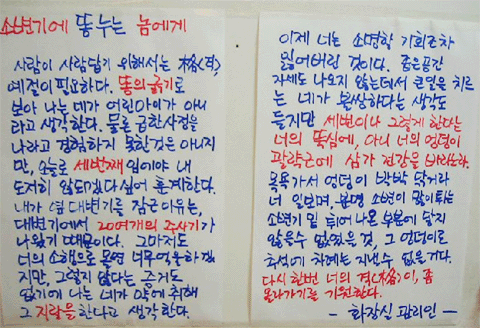 소변기에 똥누는 놈에게
사람이 사람답기 위해서는 格(격),
예절이 필요하다. 똥의 굵기로
보아 나는 네가 어린아이가 아니
라고 생각한다. 물론 급한사정을
나라고 경험하지 못한것은 아니지
만, 오늘로 세번째임에야 내
도저히 않되겠다 싶어 훈계한다.
내가 옆 대변기를 잠근 이유는,
대변기에서 20여개의 주사기가
나왔기 때문이다. 그마저도
너의 소행으로 몰면 너무 억울하겠
지만, 그렇지 않다는 증거도
없기에 나는 네가 약에 취해
그 지랄을 한다고 생각한다.
이제 너는 소명할 기회조차
잃어버린 것이다. 좁은공간
자세도 나오지 않는데서 큰일을 치르
는 네가 불쌍하다는 생각도
들지만 세번이나 그렇게 한다는
너의 뚝심에, 아니 너의 엉덩이
괄약근에 삼가 건강을 바라노라.
목욕가서 엉덩이 박박 닦거라
너 일보며, 분명 소변이 많이튀는
소변기 밑 튀어나온 부분에 닿지
않을수 없었을 것, 그 엉덩이로
추석에 차례는 지낼수 없을거다.
다시 한번 너의 격(格)이, 좀
올라가기를 기원한다.
- 화장실 관리인 -